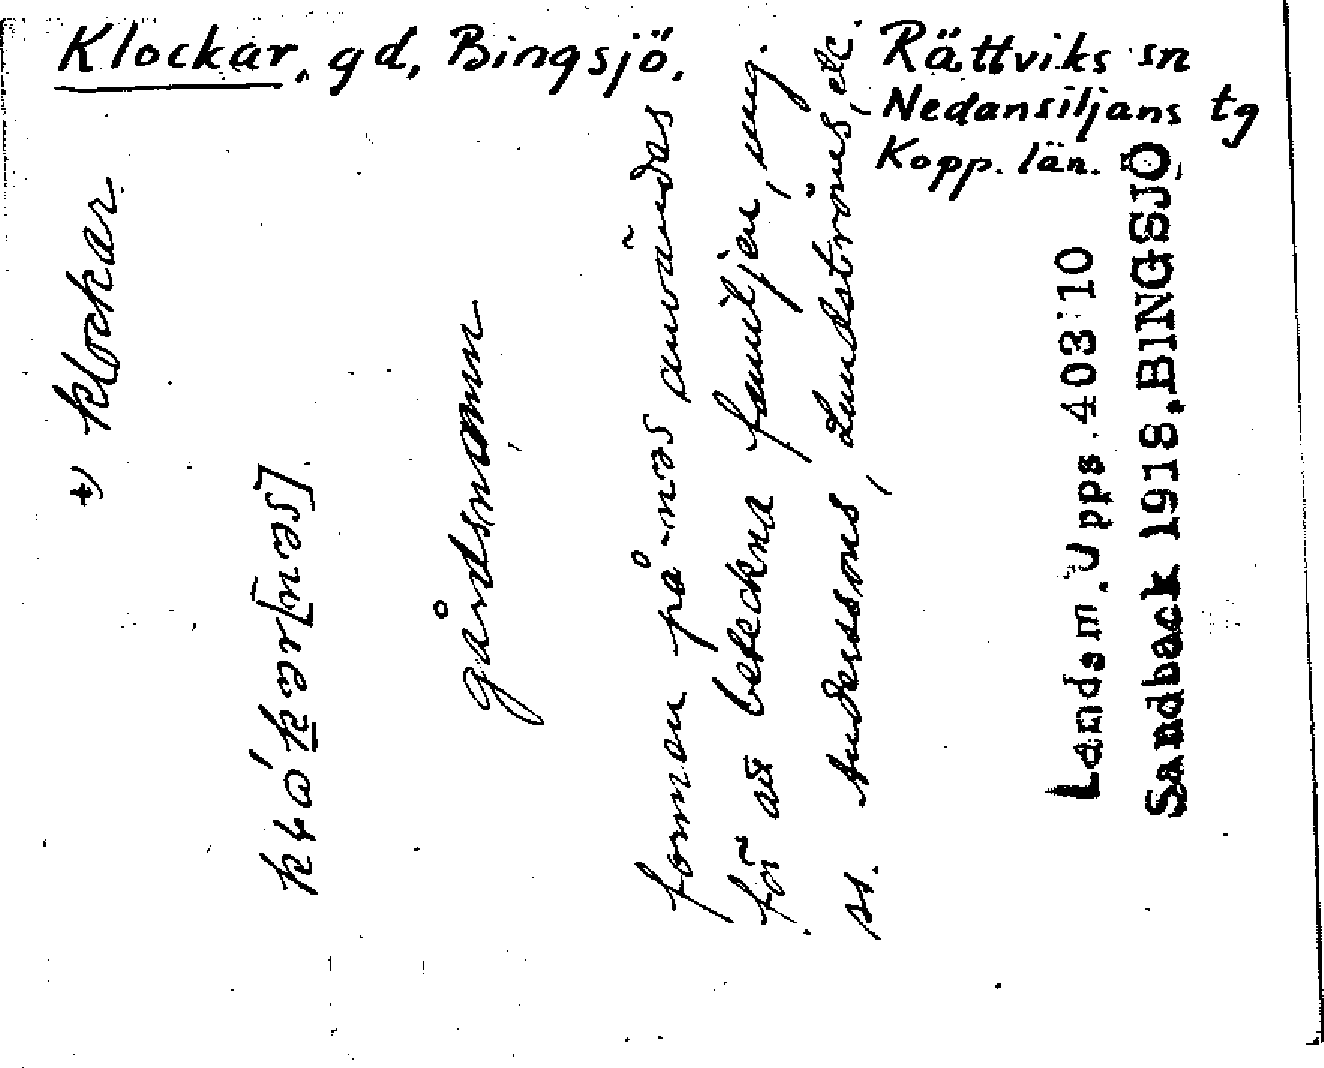 Klockar, gd, Bingsjö,
Rättviks sn
Nedansiljans tg
Kopp. län.
+) klockar
gårdsnamn
formen på -nas användes
för att beteckna familjen, ung.
ss. Anderssons, Lundströms, etc.
Landsm. Upps. 403:10
Sandback 1918. BINGSJÖ